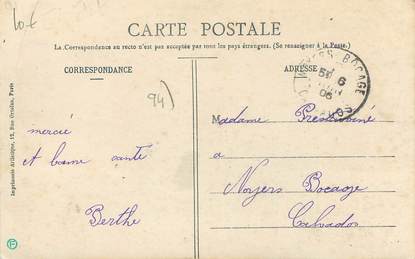 10€
CARTE POSTALE
La Correspondance au recto n'est pas acceptée par tous les pays étrangers. (Se renseigner à la Poste.)
CORRESPONDANCE
ADRESSE
NOYERS-BOCAGE
5E 6
JUIN
06
94)
merci
et bonne santé
Berthe
Madame
a
Noyers Bocage
Calvados
Imprimerie Artistique, 12, Rue Paris